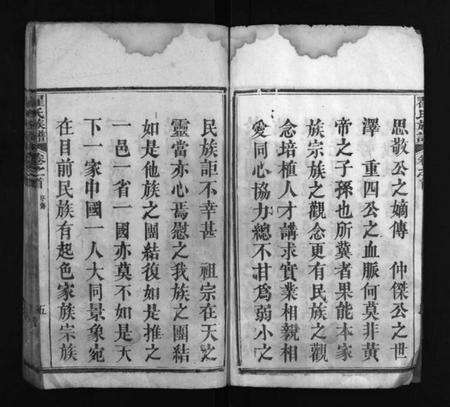 思敬公之嫡傳　仲傑公之世
澤　重四公之血脈何莫非黃
帝之子孫也所冀者果能本家
族宗族之觀念更有民族之觀
念培植人才講求實業相親相
愛同心協力總不甘爲弱小之
民族詎不幸甚　祖宗在天之
靈當亦心焉慰之我族之團結
如是他族之團結復如是推之
一邑一省一國亦莫不如是天
下一家中國一人大同景象宛
在目前民族有起色家族宗族
氏族譜
卷之首
五